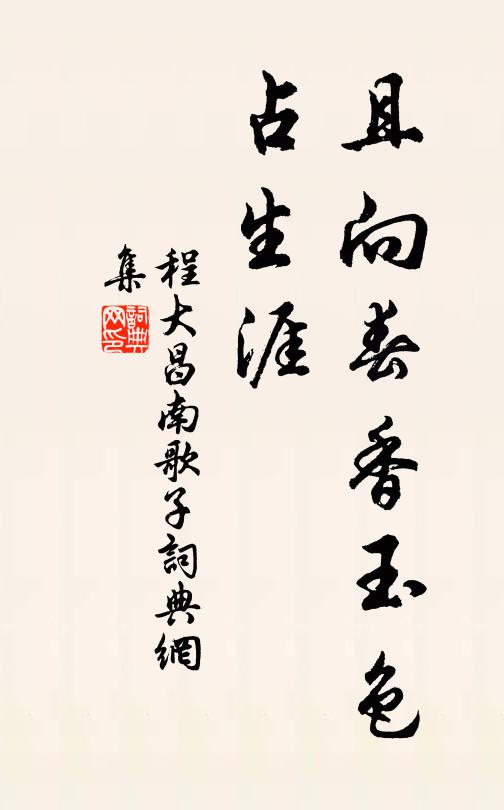 且向春香玉色
占生涯
程大昌南歌子詞典網
集
詞典
网印